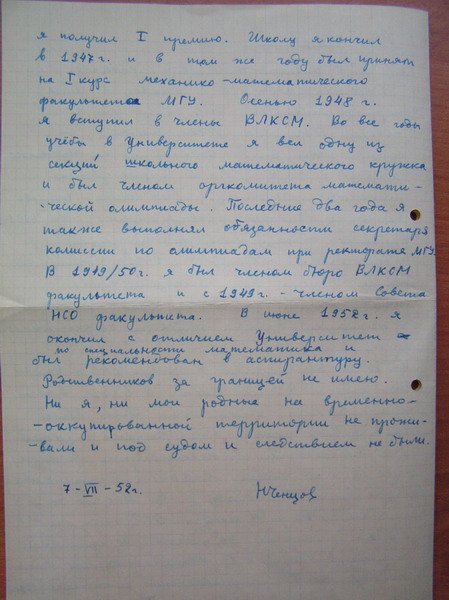 я получил I премию. Школу я кончил
в 1947г. и в том же году был принят
на I курс механико-математического
факультета МГУ. Осенью 1948 г.
я вступил в члены ВЛКСМ. Во все годы
учёбы в Университете я вел одну из
секций школьного математического кружка
и был членом оргкомитета математи-
-ческой олимпиады. Последние два года я
также выполнял обязанности секретаря
комиссии по олимпиадам при ректорате МГУ.
В 1949/50г. я был членом бюро ВЛКСМ
факультета и с 1949г. - членом Совета
НСО факультета. В июне 1952г. я
окончил с отличием Университет
по специальности математика и
был рекомендован в аспирантуру.
Родственников за границей не имею.
Ни я, ни мои родные на временно-
-оккупированной территории не прожи-
-вали и под судом и следствием не были.
7-VII-52г. НЧенцов